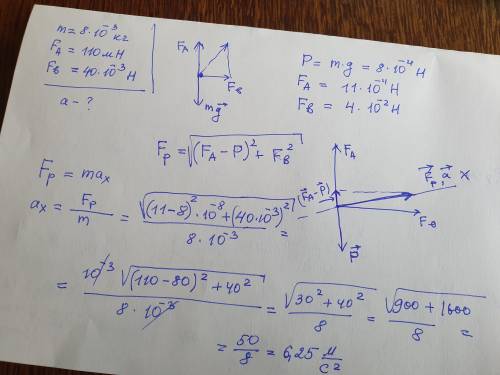 m = 8·10⁻³ кг
F_A = 110 мН
F_B = 40·10⁻³ Н
a - ?
F_A
F_B
mg⃗
P = m·g = 8·10⁻⁴ Н
F_A = 11·10⁻⁴ Н
F_B = 4·10⁻² Н
F_p = √((F_A - P)² + F_B²)
F_p = ma_x
a_x = F_p / m = √((11-8)²·10⁻⁸ + (40·10⁻³)²) / 8·10⁻³ =
F_A
(F⃗_A - P⃗)
F⃗_p, a⃗ x
F_B
P⃗
= 10⁻³ √((110-80)² + 40²) / 8·10⁻³ = √(30² + 40²) / 8 = √(900 + 1600) / 8 =
= 50/8 = 6,25 м/с²